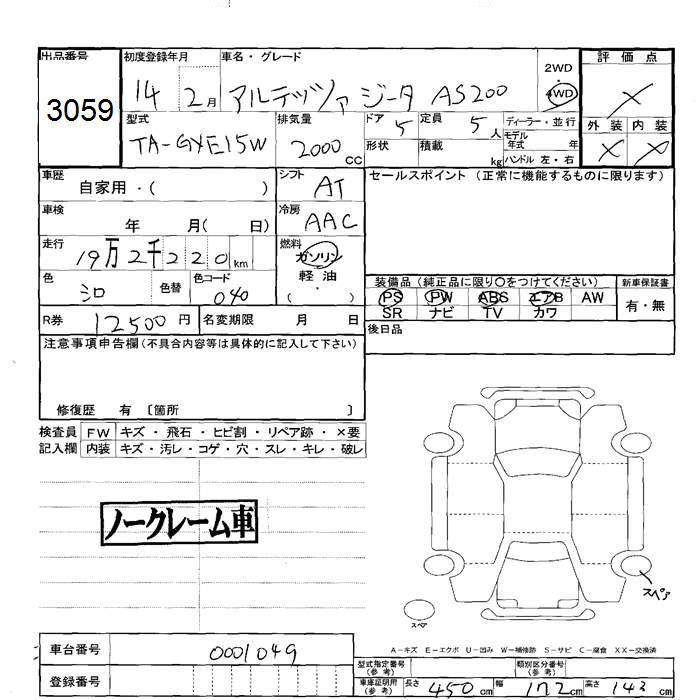 出品番号 初度登録年月 車名・グレード 2WD 評価点
3059 14 2月 アルテッツァ ジータ AS200 4WD ×
型式 排気量 ドア 5 定員 5人 ディーラー・並行 外装 内装
TA-GXE15W 2000cc 形状 積載 kg モデル年式 年 × ×
ハンドル 左・右
車歴 自家用・( ) シフト AT セールスポイント (正常に機能するものに限ります)
車検 年 月( 日) 冷房 AAC
走行 19万2千220km 燃料 ガソリン
軽油
・
( )
色 シロ 色替 色コード 040
装備品 (純正品に限り○をつけてください) 新車保証書
PS PW ABS エアB AW 有・無
SR ナビ TV カワ
R券 12500円 名変期限 月 日 後日品
注意事項申告欄(不具合内容等は具体的に記入して下さい)
修復歴 有 〔箇所 〕
検査員 FW キズ・飛石・ヒビ割・リペア跡・×要
記入欄 内装 キズ・汚レ・コゲ・穴・スレ・キレ・破レ
ノークレーム車
スペア
スペア
A-キズ E-エクボ U-凹み W-補修跡 S-サビ C-腐食 XX-交換済
車台番号 0001049 型式指定番号(参考) 類別区分番号(参考)
登録番号 車庫証明用(参考) 長さ 450cm 幅 172cm 高さ 143cm